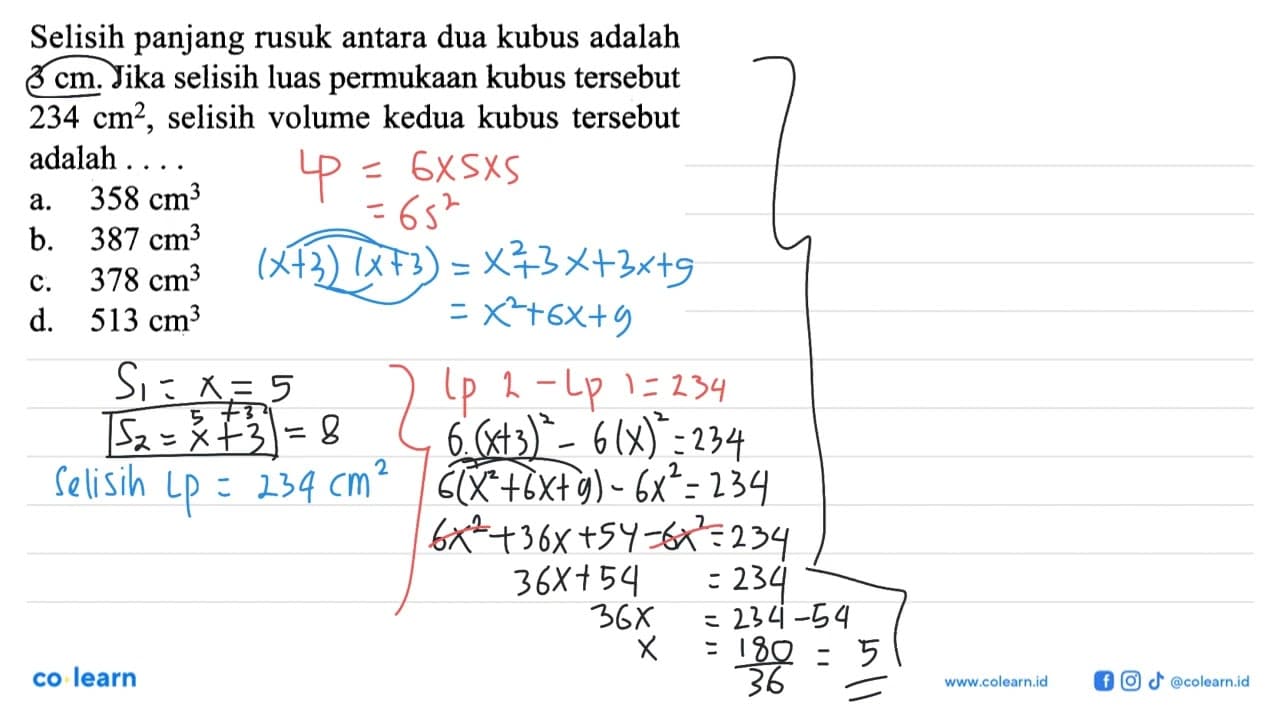 Selisih panjang rusuk antara dua kubus adalah
3 cm. Jika selisih luas permukaan kubus tersebut
234 cm², selisih volume kedua kubus tersebut
adalah . . . .
a. 358 cm³
b. 387 cm³
c. 378 cm³
d. 513 cm³
Lp = 6×s×s
= 6s²
(x+3)(x+3) = x²+3x+3x+9
= x²+6x+9
S₁ = x = 5
5 +3
S₂ = x+3 = 8
Selisih Lp = 234 cm²
Lp 2 - Lp 1 = 234
6.(x+3)² - 6(x)² = 234
6(x²+6x+9) - 6x² = 234
6x²+36x+54-6x² = 234
36x+54 = 234
36x = 234-54
x = 180/36 = 5
co learn
www.colearn.id
@colearn.id